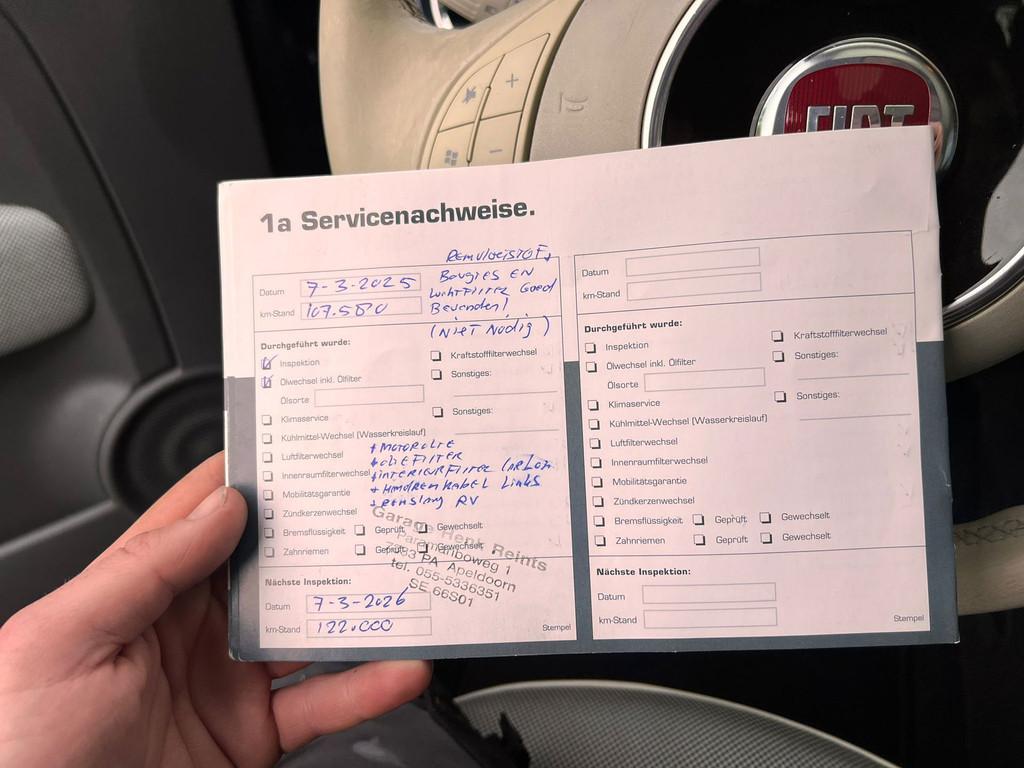 FIAT
1a Servicenachweise.
Datum 7-3-2025
km-Stand 107.580
Remvloeistof,
Bougies en
Luchtfilter Goed
Bevonden!
(Niet Nodig)
Durchgeführt wurde:
Inspektion
Ölwechsel inkl. Ölfilter
Ölsorte
Klimaservice
Kühlmittel-Wechsel (Wasserkreislauf)
Luftfilterwechsel
Innenraumfilterwechsel
Mobilitätsgarantie
Zündkerzenwechsel
Bremsflüssigkeit Geprüft Gewechselt
Zahnriemen Geprüft Gewechselt
Kraftstofffilterwechsel
Sonstiges:
Sonstiges:
+ Motorolie
+ oliefilter
+ interieurfilter
+ Handremkabel Links
+ Remslang RV
Garage Henk Reints
Paramariboweg 1
7333 PA Apeldoorn
tel. 055-5336351
SE 66S01
Nächste Inspektion:
Datum 7-3-2026
km-Stand 122.000
Stempel
Datum
km-Stand
Durchgeführt wurde:
Inspektion
Ölwechsel inkl. Ölfilter
Ölsorte
Klimaservice
Kühlmittel-Wechsel (Wasserkreislauf)
Luftfilterwechsel
Innenraumfilterwechsel
Mobilitätsgarantie
Zündkerzenwechsel
Bremsflüssigkeit Geprüft Gewechselt
Zahnriemen Geprüft Gewechselt
Kraftstofffilterwechsel
Sonstiges:
Sonstiges:
Nächste Inspektion:
Datum
km-Stand
Stempel